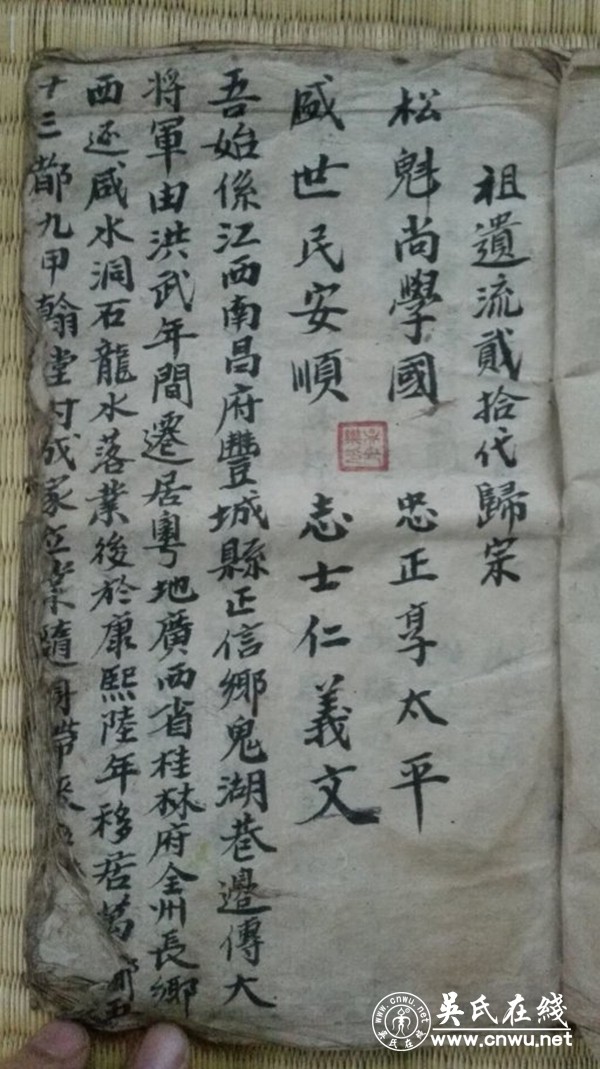 祖遺流貳拾代歸宗
松魁尚學國 忠正享太平
盛世民安順 志士仁義文
吾始係江西南昌府豐城縣正信鄉鬼湖巷邊傳大
将軍由洪武年間遷居粵地廣西省桂林府全州長鄉
西延咸水洞石龍水落業後於康熙陸年移居萬
十三都九甲翰堂村成家立業隨身帶來
吳氏在綫
www.cnwu.net
www.cnwu.net
吳氏在綫